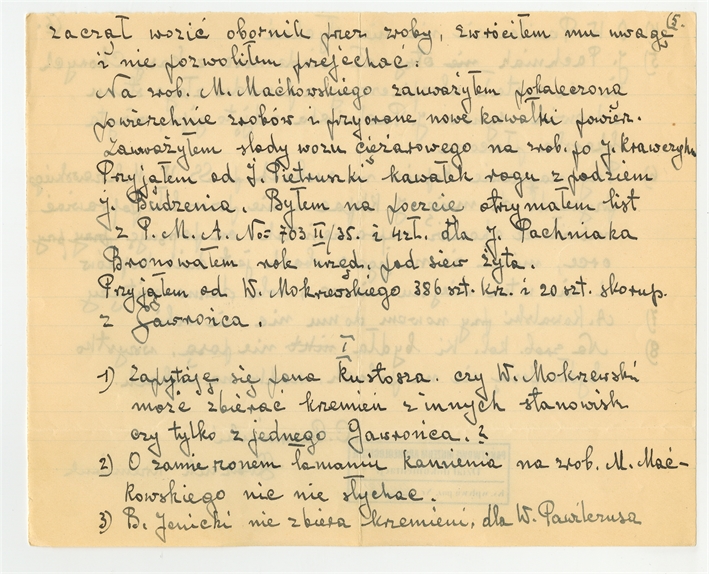 5.
zaczął wozić obornik przez zroby, zwróciłem mu uwagę
i nie pozwoliłem przejechać.
Na zrob. M. Maćkowskiego zauważyłem pokaleczoną
powierzchnie zrobów i przyorane nowe kawałki powierz.
Zauważyłem ślady wozu ciężarowego na zrob. po J. Krawczyku
Przyjąłem od J. Pietruszki kawałek rogu z podziem
J. Budzenia. Byłem na poczcie otrzymałem list
z P. M. A. No- 703 II/35. i 4zł. dla J. Pachniaka
Bronowałem rok urzęd. pod siew żyta.
Przyjąłem od W. Mokrzewskiego 386 szt. krz. i 20 szt. skorup.
z Gawrońca.
I
1) Zapytaję się pana kustosza. czy W. Mokrzewski
może zbierać krzemień z innych stanowisk
czy tylko z jednego Gawrońca.?
2) O zamierzonem łamaniu kamienia na zrob. M. Mać-
kowskiego nic nie słychac.
3) B. Jenicki nie zbiera krzemieni, dla W.